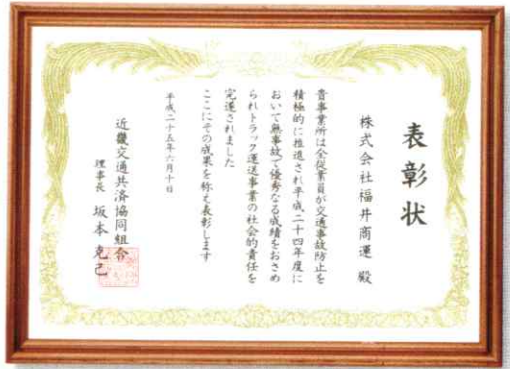 表彰状
株式会社福井商運 殿
貴事業所は全従業員が交通事故防止を
積極的に推進され平成二十四年度に
おいて無事故で優秀なる成績をおさめ
られトラック運送事業の社会的責任を
完遂されました
ここにその成果を称え表彰します
平成二十五年六月十日
近畿交通共済協同組合
理事長 坂本克己